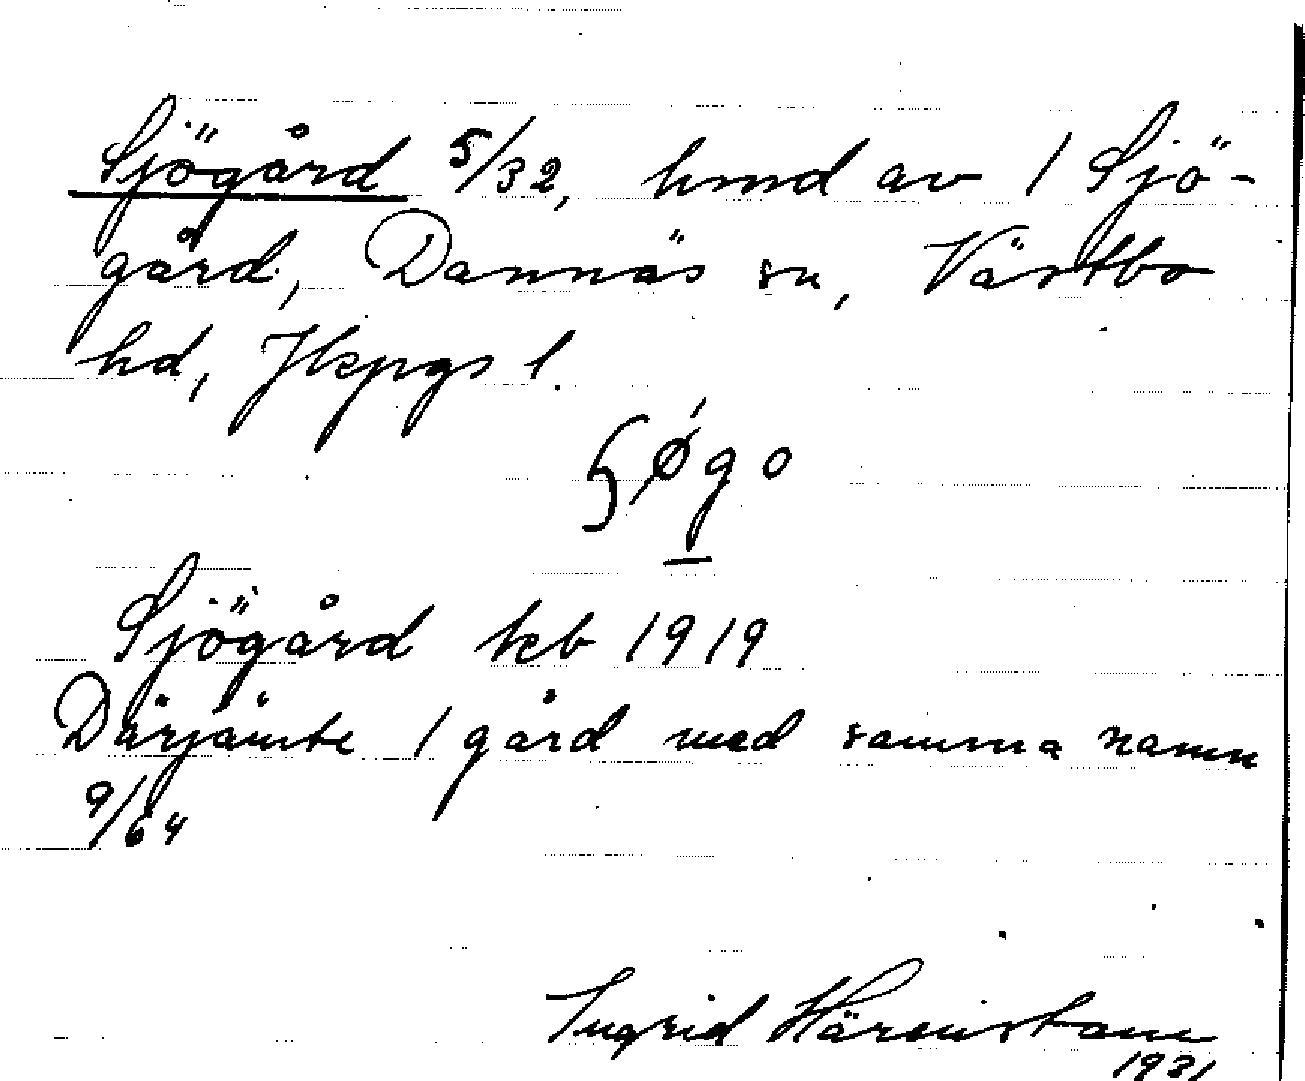 Sjögård 5/32, hmd av 1 Sjö-
gård, Dannäs sn, Västbo
hd, Jkpgs l.
ʃø̀go
Sjögård kb 1919
Därjämte 1 gård med samma namn
9/64
Ingrid Härenstam
1931